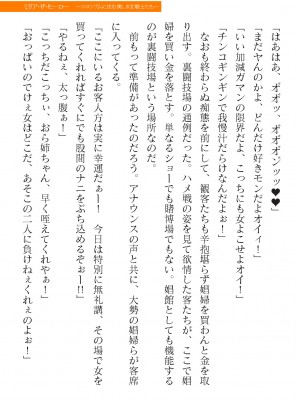 「はぁはあ、オオッ オオオンッッ♥♥」
「まだヤんのかよ、どんだけ好きモンだよオイィ！」
「いい加減ガマンの限界だよ、こっちにも女よこせよオイ！」
「チンコギンギンで我慢汁だらけなんだよぉ！」
なおも終わらぬ痴態を前にして、観客たちも辛抱堪らず娼婦を買わんと金を取
り出す。裏闘技場の通例だった。ハメ戦の姿を見て欲情した客たちが、ここで娼
婦を買い金を落とす。単なるショーでも賭博場でもない。娼館としても機能する
のが裏闘技場という場所なのだ。
前もって準備があったのだろう。アナウンスの声と共に、大勢の娼婦らが客席
に入ってくる。
『ここにいるお客人方は実に幸運だぁー！ 今日は特別に無礼講、その場で女を
買ってくれればすぐにでも股間のナニをぶち込めるぞぉー！！』
「やるねぇ、太っ腹ぁ！」
「こっちだこっちぃ、おら姉ちゃん、早く咥えてくれやぁ！」
「おっぱいのでけぇ女はどこだ、あそこの二人に負けねぇくれぇのよぉー！」